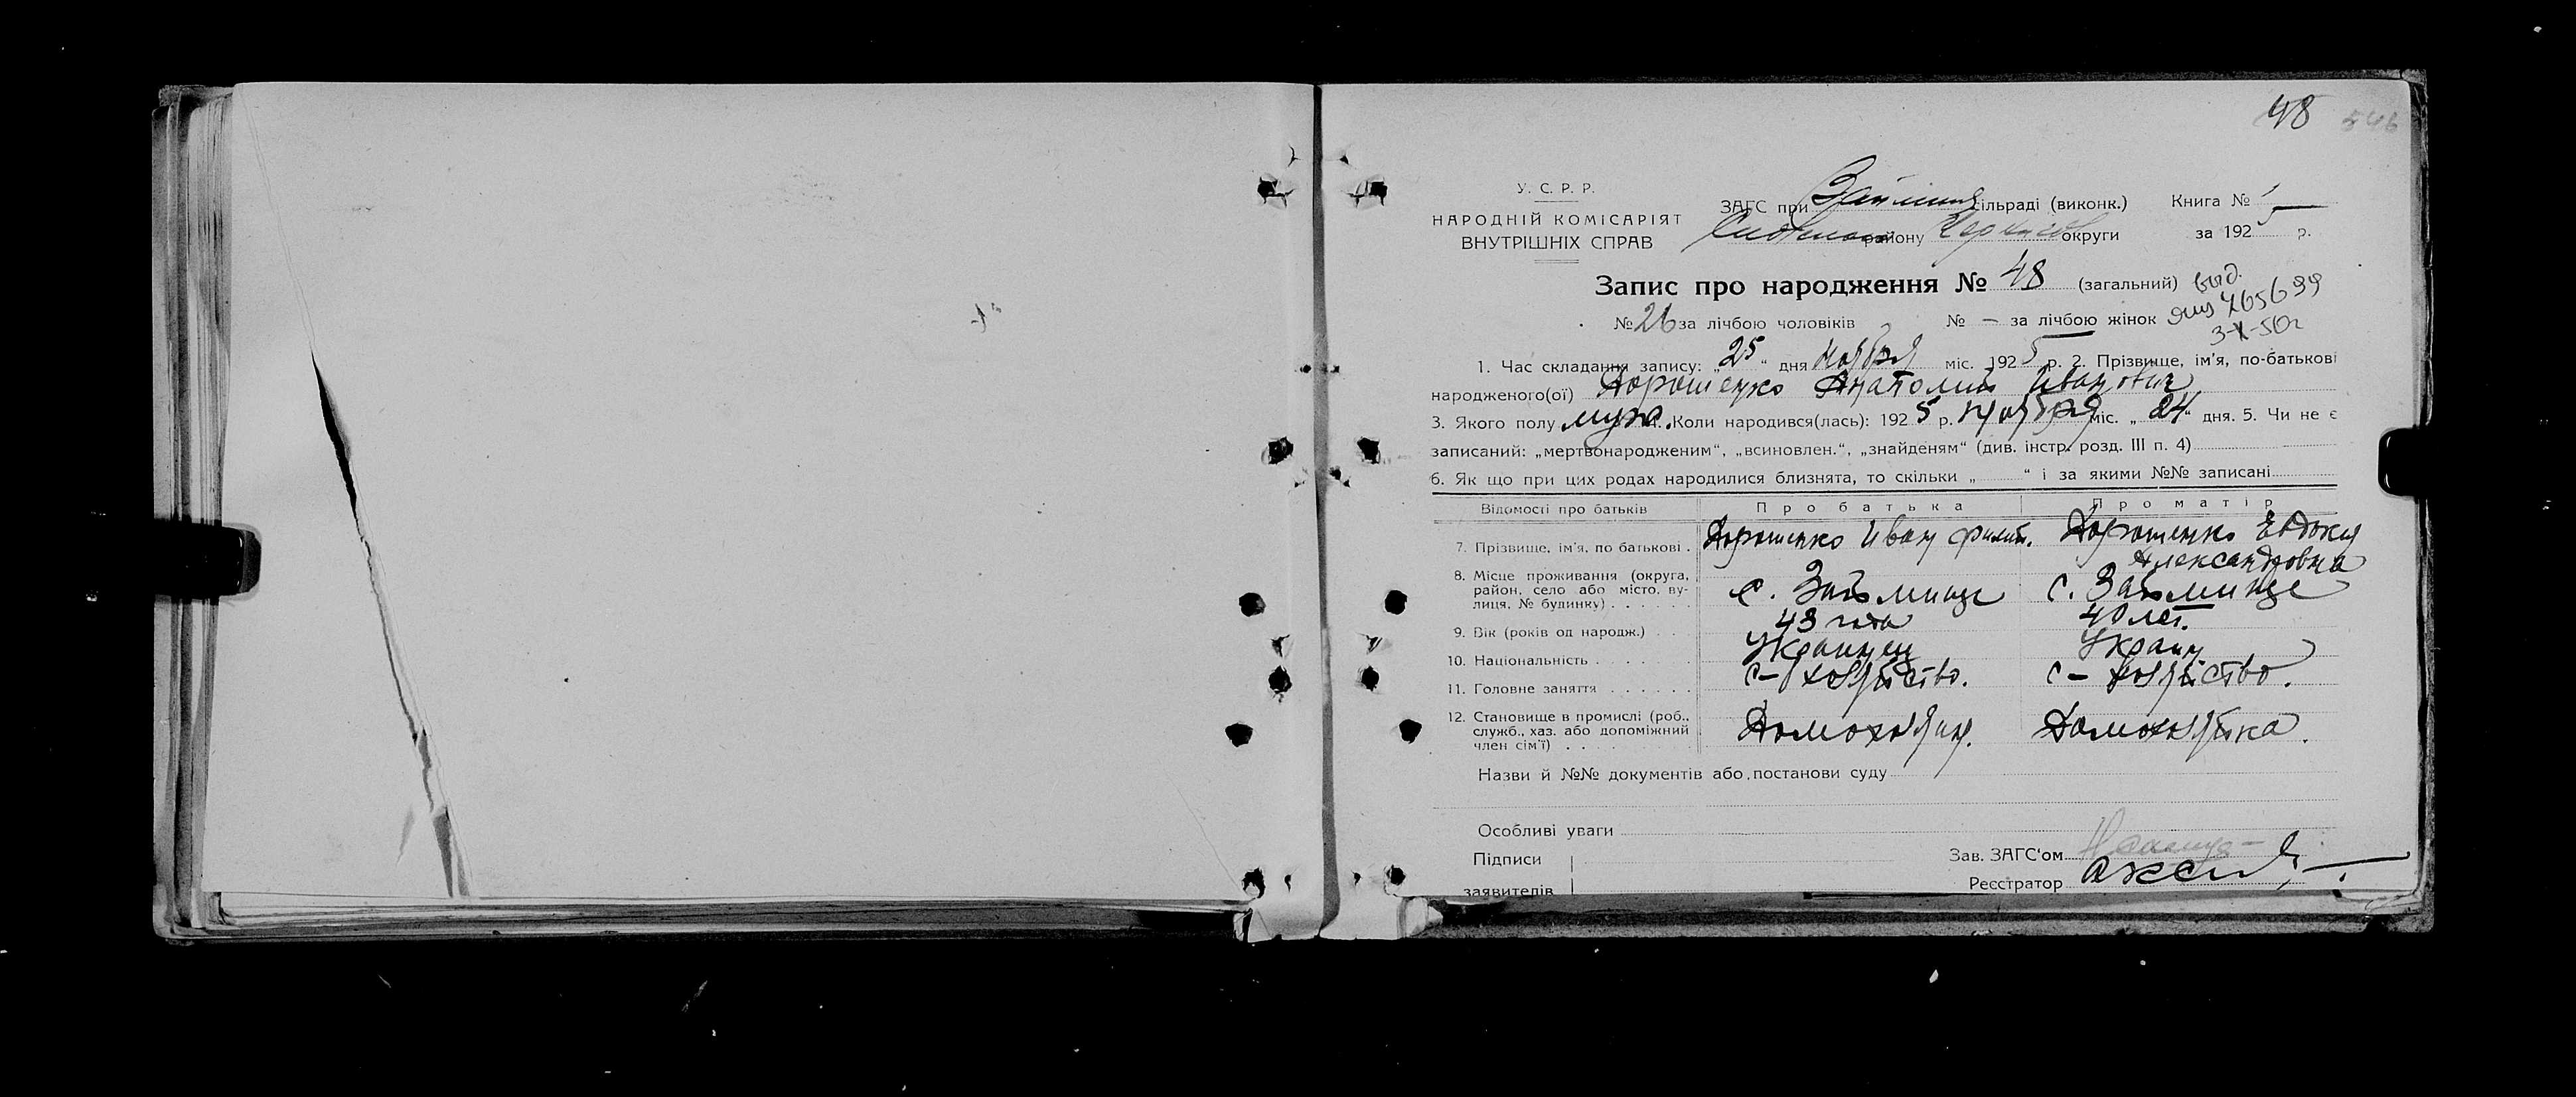 48 546
У. С. Р. Р.
НАРОДНІЙ КОМІСАРІЯТ
ВНУТРІШНІХ СПРАВ
ЗАГС при сільраді (виконк.) Книга №
району округи за 1925 р.
Запис про народження № 48 (загальний) выд.
№ 26 за лічбою чоловіків № — за лічбою жінок
1. Час складання запису: „25“ дня ноября міс. 1925 р. 2. Прізвище, ім'я, по-батькові
народженого(ої) Дорошенко Анатолий Иванович
3. Якого полу муж. 4. Коли народився(лась): 1925 р. ноября міс. „24“ дня. 5. Чи не є
записаний: „мертвонародженим“, „всиновлен.“, „знайденям“ (див. інстр. розд. III п. 4)
6. Як що при цих родах народилися близнята, то скільки „ “ і за якими №№ записані
Відомості про батьків Про батька Про матір
7. Прізвище, ім'я, по батькові . Дорошенко Иван Филип. Дорошенко Евдокия
Александровна
8. Місце проживання (округа, район, село або місто, ву-
лиця, № будинку) . . . . . . с. Займище с. Займище
9. Вік (років од народж.) . . 43 года 40 лет.
10. Національність . . . . . Украинец Украин
11. Головне заняття . . . . . . с-хозяйство. с-хозяйство.
12. Становище в промислі (роб.,
служб., хаз. або допоміжний
член сім'ї) . . . Домохозяин. Домохозяйка.
Назви й №№ документів або постанови суду
Особливі уваги
Підписи
заявителів
Зав. ЗАГС'ом
Реєстратор